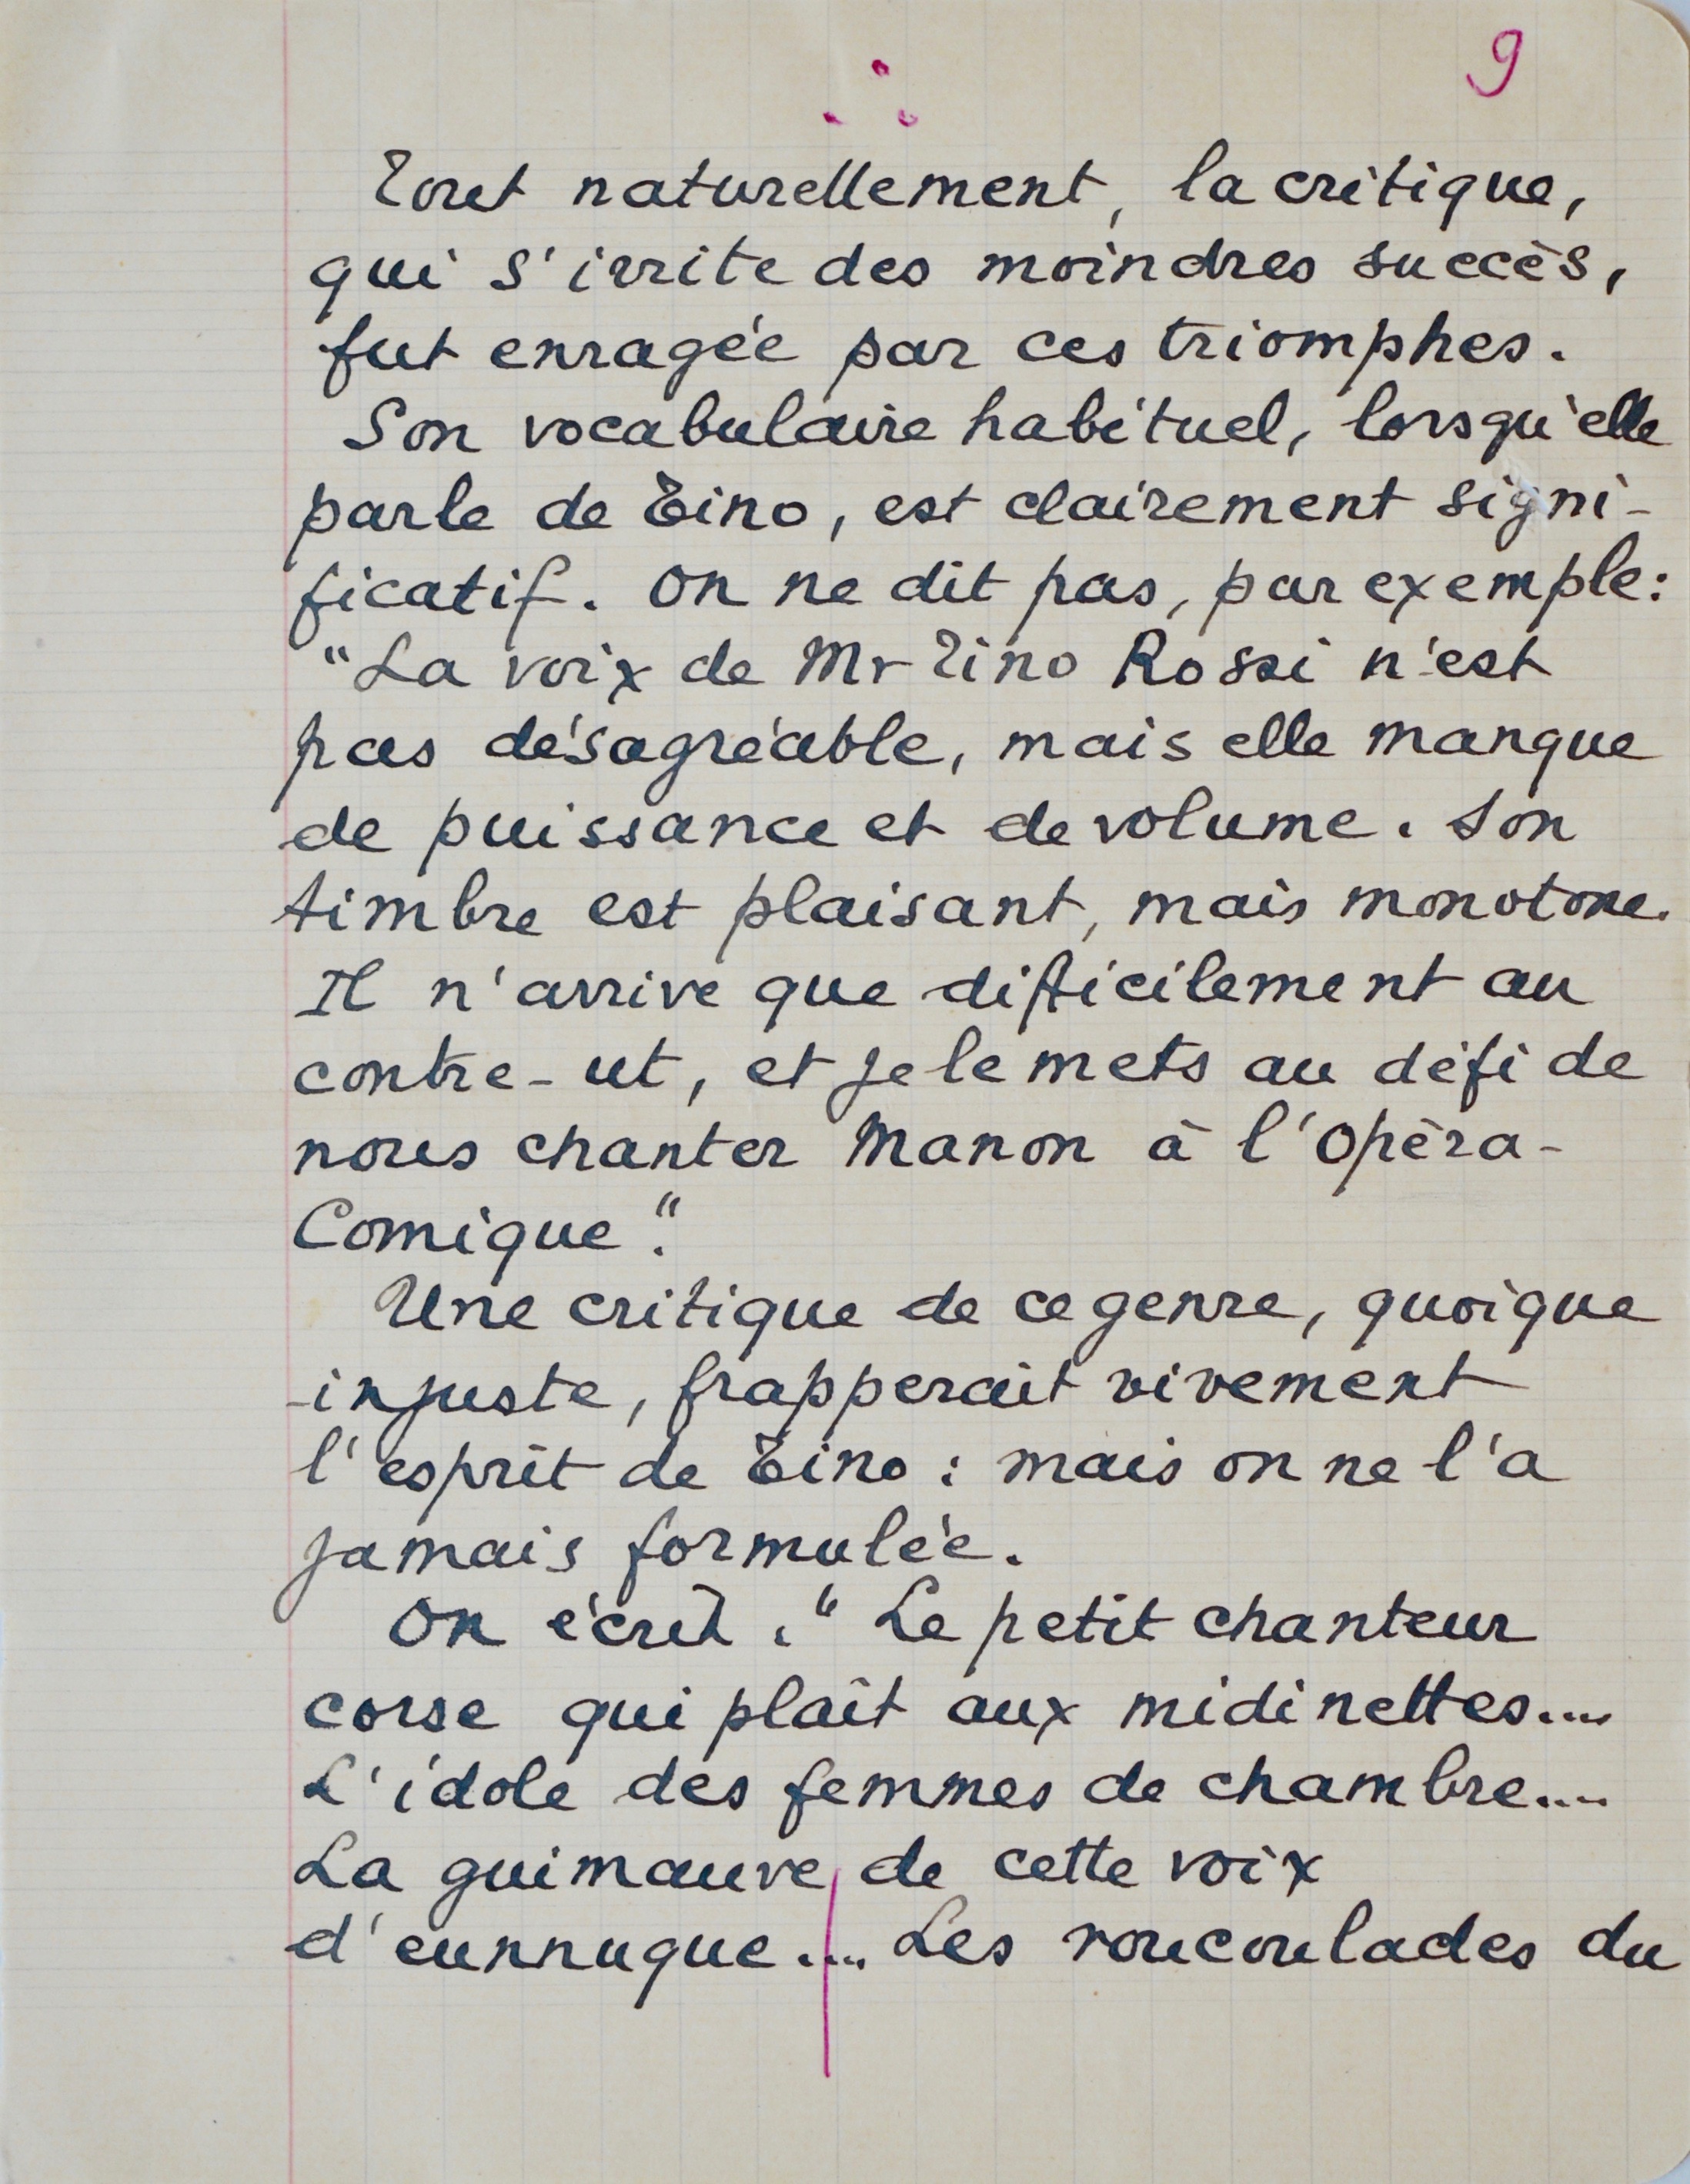 9
∴
Tout naturellement, la critique,
qui s'irrite des moindres succès,
fut enragée par ces triomphes.
Son vocabulaire habituel, lorsqu'elle
parle de Tino, est clairement signi-
ficatif. On ne dit pas, par exemple:
"La voix de Mr Tino Rossi n'est
pas désagréable, mais elle manque
de puissance et de volume. Son
timbre est plaisant, mais monotone.
Il n'arrive que difficilement au
contre-ut, et je le mets au défi de
nous chanter Manon à l'Opéra-
Comique".
Une critique de ce genre, quoique
injuste, frapperait vivement
l'esprit de Tino : mais on ne l'a
jamais formulée.
On écrit : "Le petit chanteur
corse qui plaît aux midinettes....
L'idole des femmes de chambre....
La guimauve de cette voix
d'eunnuque.... Les roucoulades du